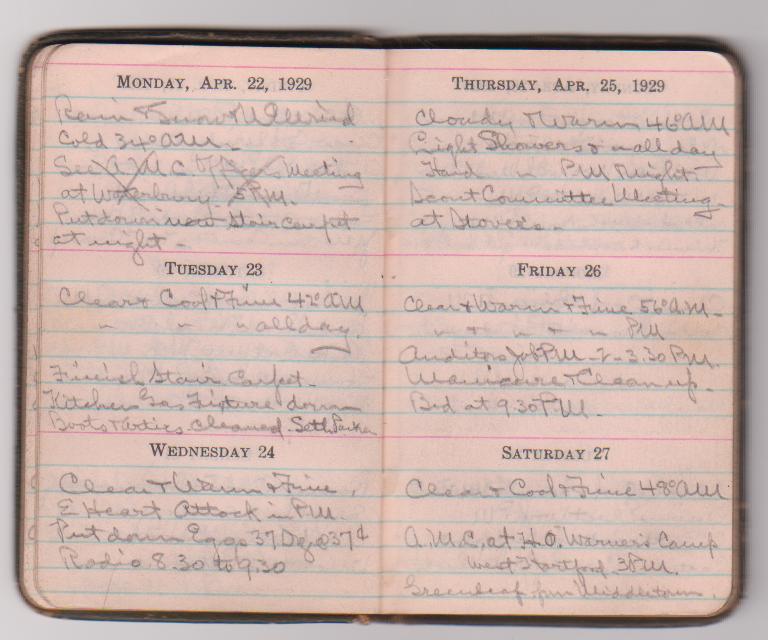 MONDAY, APR. 22, 1929
Rain + Snow + Wind
Cold 34° A.M.
Sec A.M.C. Officers Meeting
at Waterbury 5 P.M.
Put down new Stair carpet
at night -
TUESDAY 23
Clear + Cool + Fine 42° A.M.
" " " all day.
Finish Stair Carpet -
Kitchen Gas Fixture down
Boots + cleaned. Seth Parker
WEDNESDAY 24
Clear + Warm + Fine.
E Heart Attack in P.M.
Put down Eggs 37 Doz @ 37¢
Radio 8.30 to 9.30
THURSDAY, APR. 25, 1929
Cloudy + Warm 46° A.M.
Light Showers " all day
Hard " P.M. Night -
Scout Committee Meeting
at Stover's -
FRIDAY 26
Clear + Warm + Fine 56° A.M. -
" + " + " P.M.
Auditors Job P.M. - 2 - 3.30 P.M.
Manicure + Clean up.
Bed at 9.30 P.M.
SATURDAY 27
Clear + Cool + Fine 48° A.M.
A.M.C. at H.O. Warner's Camp
West Hartford 3 P.M.
Greenleaf from Middletown.